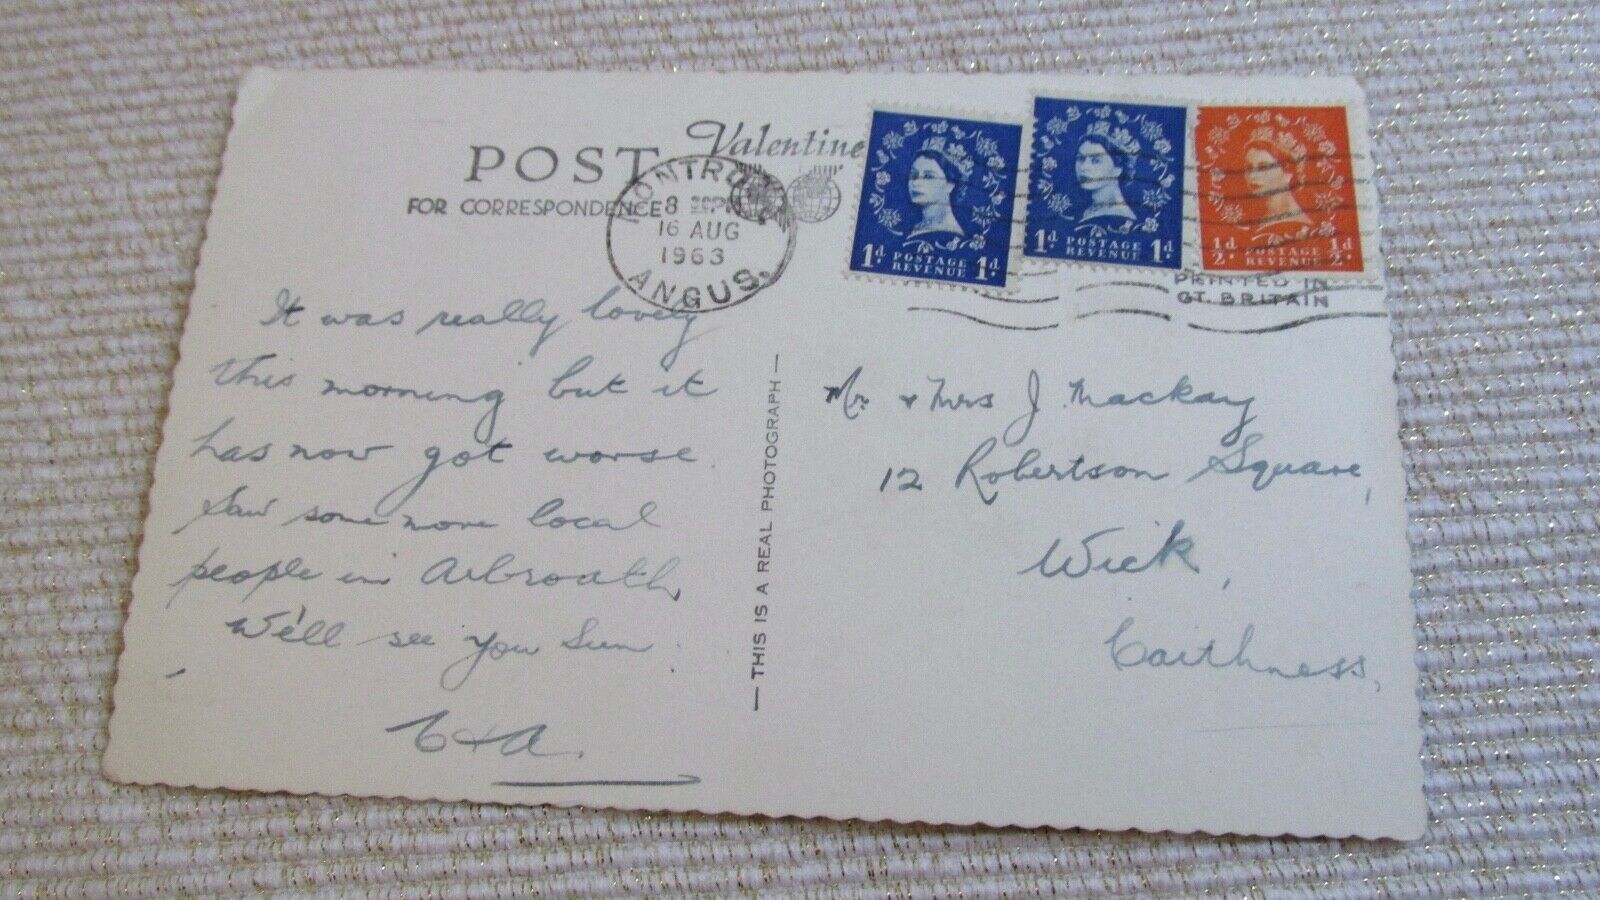 Valentine
POST
FOR CORRESPONDENCE
MONTROSE
8
16 AUG
1963
ANGUS.
1d POSTAGE REVENUE 1d
1d POSTAGE REVENUE 1d
½d POSTAGE REVENUE ½d
PRINTED IN
GT. BRITAIN
It was really lovely
this morning but it
has now got worse.
Saw some more local
people in Arbroath,
We'll see you Sun.
— THIS IS A REAL PHOTOGRAPH —
Mr. & Mrs J. Mackay
12 Robertson Square,
Wick,
Caithness,